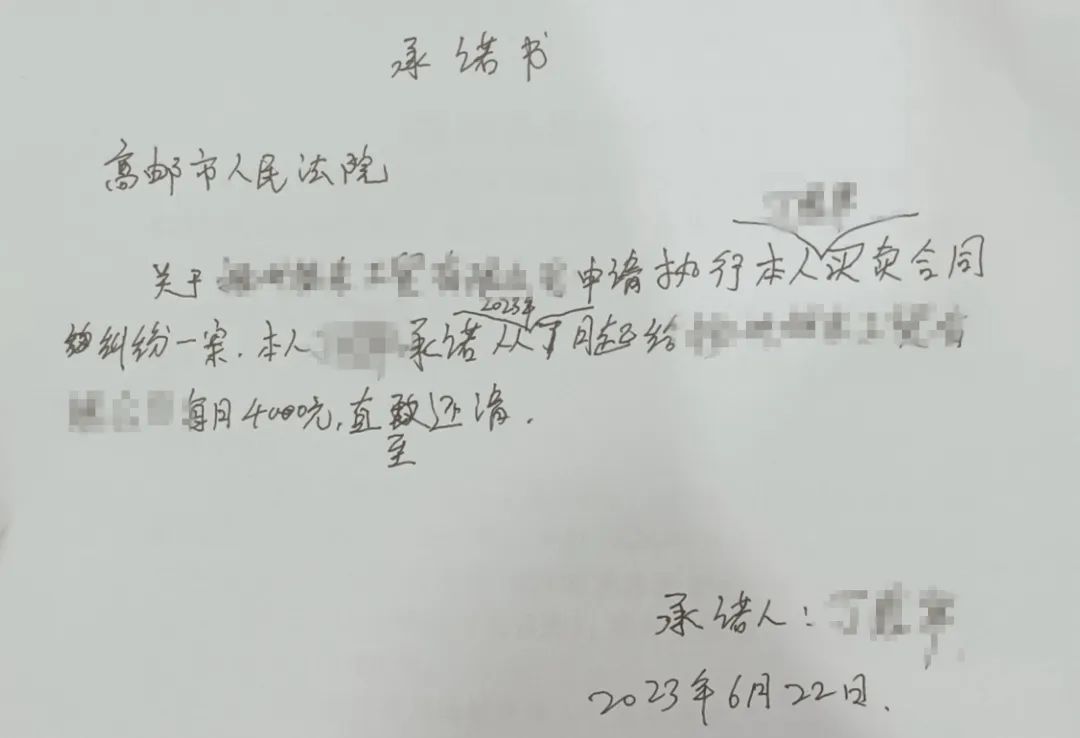 承诺书
高邮市人民法院
关于 申请执行本人买卖合同
纠纷一案.本人 承诺从2023年7月起给
每月4000元,直至还清.
承诺人:
2023年6月22日.